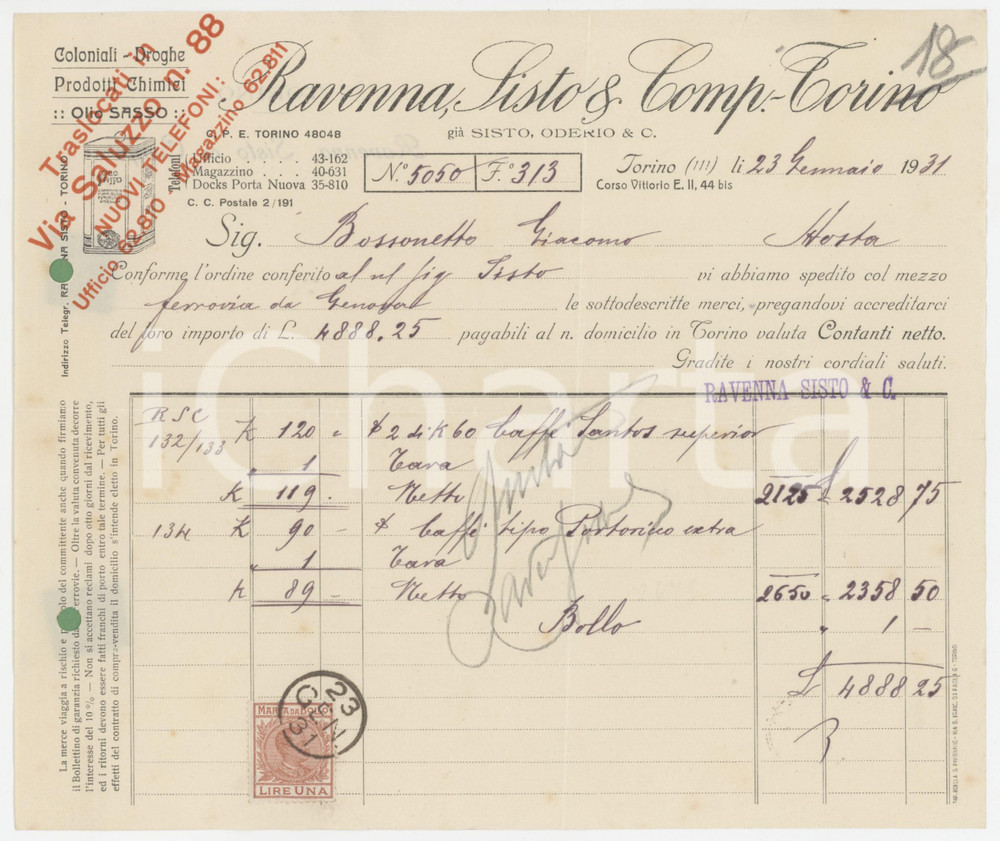 18
Coloniali - Droghe
Prodotti Chimici
:: Olio SASSO ::
Traslocati in
Via Saluzzo n. 88
NUOVI TELEFONI:
Ufficio 62.810 - Magazzino 62.811
Ravenna, Sisto & Comp.-Torino
già SISTO, ODERIO & C.
C. P. E. TORINO 48048
Telefoni
Ufficio . . . . 43-162
Magazzino . . . 40-631
Docks Porta Nuova 35-810
C. C. Postale 2/191
N.° 5050 F.° 313
Torino (111) li 23 Gennaio 1931
Corso Vittorio E. II, 44 bis
Sig. Bossonetto Giacomo Aosta
Conforme l'ordine conferito al n/ sig Sisto vi abbiamo spedito col mezzo
ferrovia da Genova le sottodescritte merci, pregandovi accreditarci
del loro importo di L. 4888.25 pagabili al n. domicilio in Torino valuta Contanti netto.
Gradite i nostri cordiali saluti.
RAVENNA SISTO & C.
iCharta
Indirizzo Telegr. RAVENNA SISTO - TORINO
RSC
132/133 K 120 = 2 di K 60 Caffè Santos superior
" 1 Tara
K 119. Netto 2125 L 2528 75
134 K 90 - Caffè tipo Portorico extra
" 1 Tara
K 89 - Netto 2650 " 2358 50
Bollo " 1 -
L 4888 25
23
GEN.
31
MARCA DA BOLLO
LIRE UNA
La merce viaggia a rischio e pericolo del committente anche quando firmiamo
il Bollettino di garanzia richiesto dalle Ferrovie. — Oltre la valuta convenuta decorre
l'interesse del 10 % — Non si accettano reclami dopo otto giorni dal ricevimento,
ed i ritorni devono essere fatti franchi di porto entro tale termine. — Per tutti gli
effetti del contratto di compra-vendita il domicilio s'intende eletto in Torino.